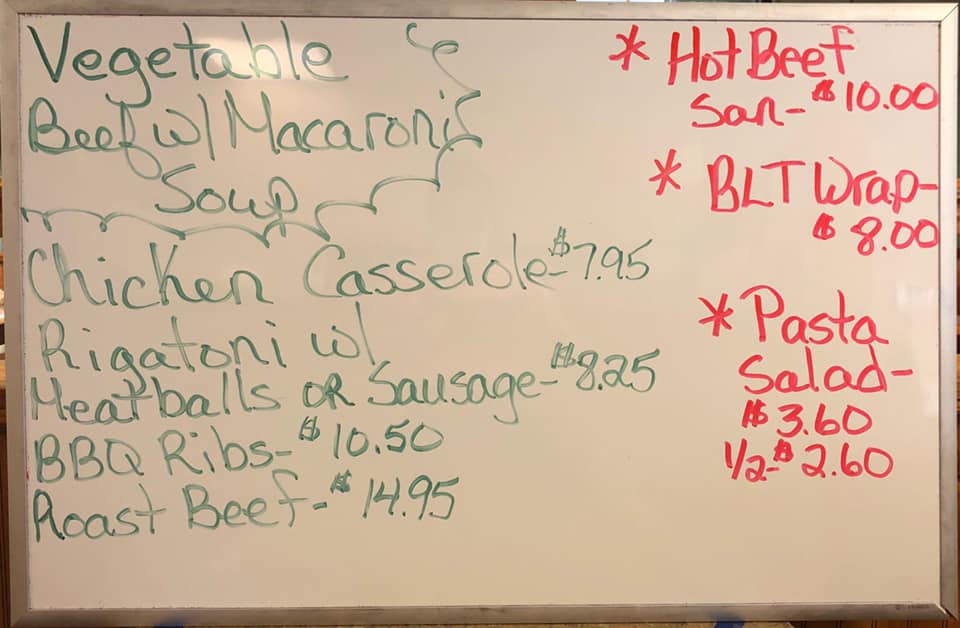 Vegetable
Beef w/ Macaroni
Soup
Chicken Casserole-$7.95
Rigatoni w/
Meatballs OR Sausage-$8.25
BBQ Ribs-$10.50
Roast Beef-$14.95
* Hot Beef
San-$10.00
* BLT Wrap-
$8.00
* Pasta
Salad-
$3.60
1/2-$2.60